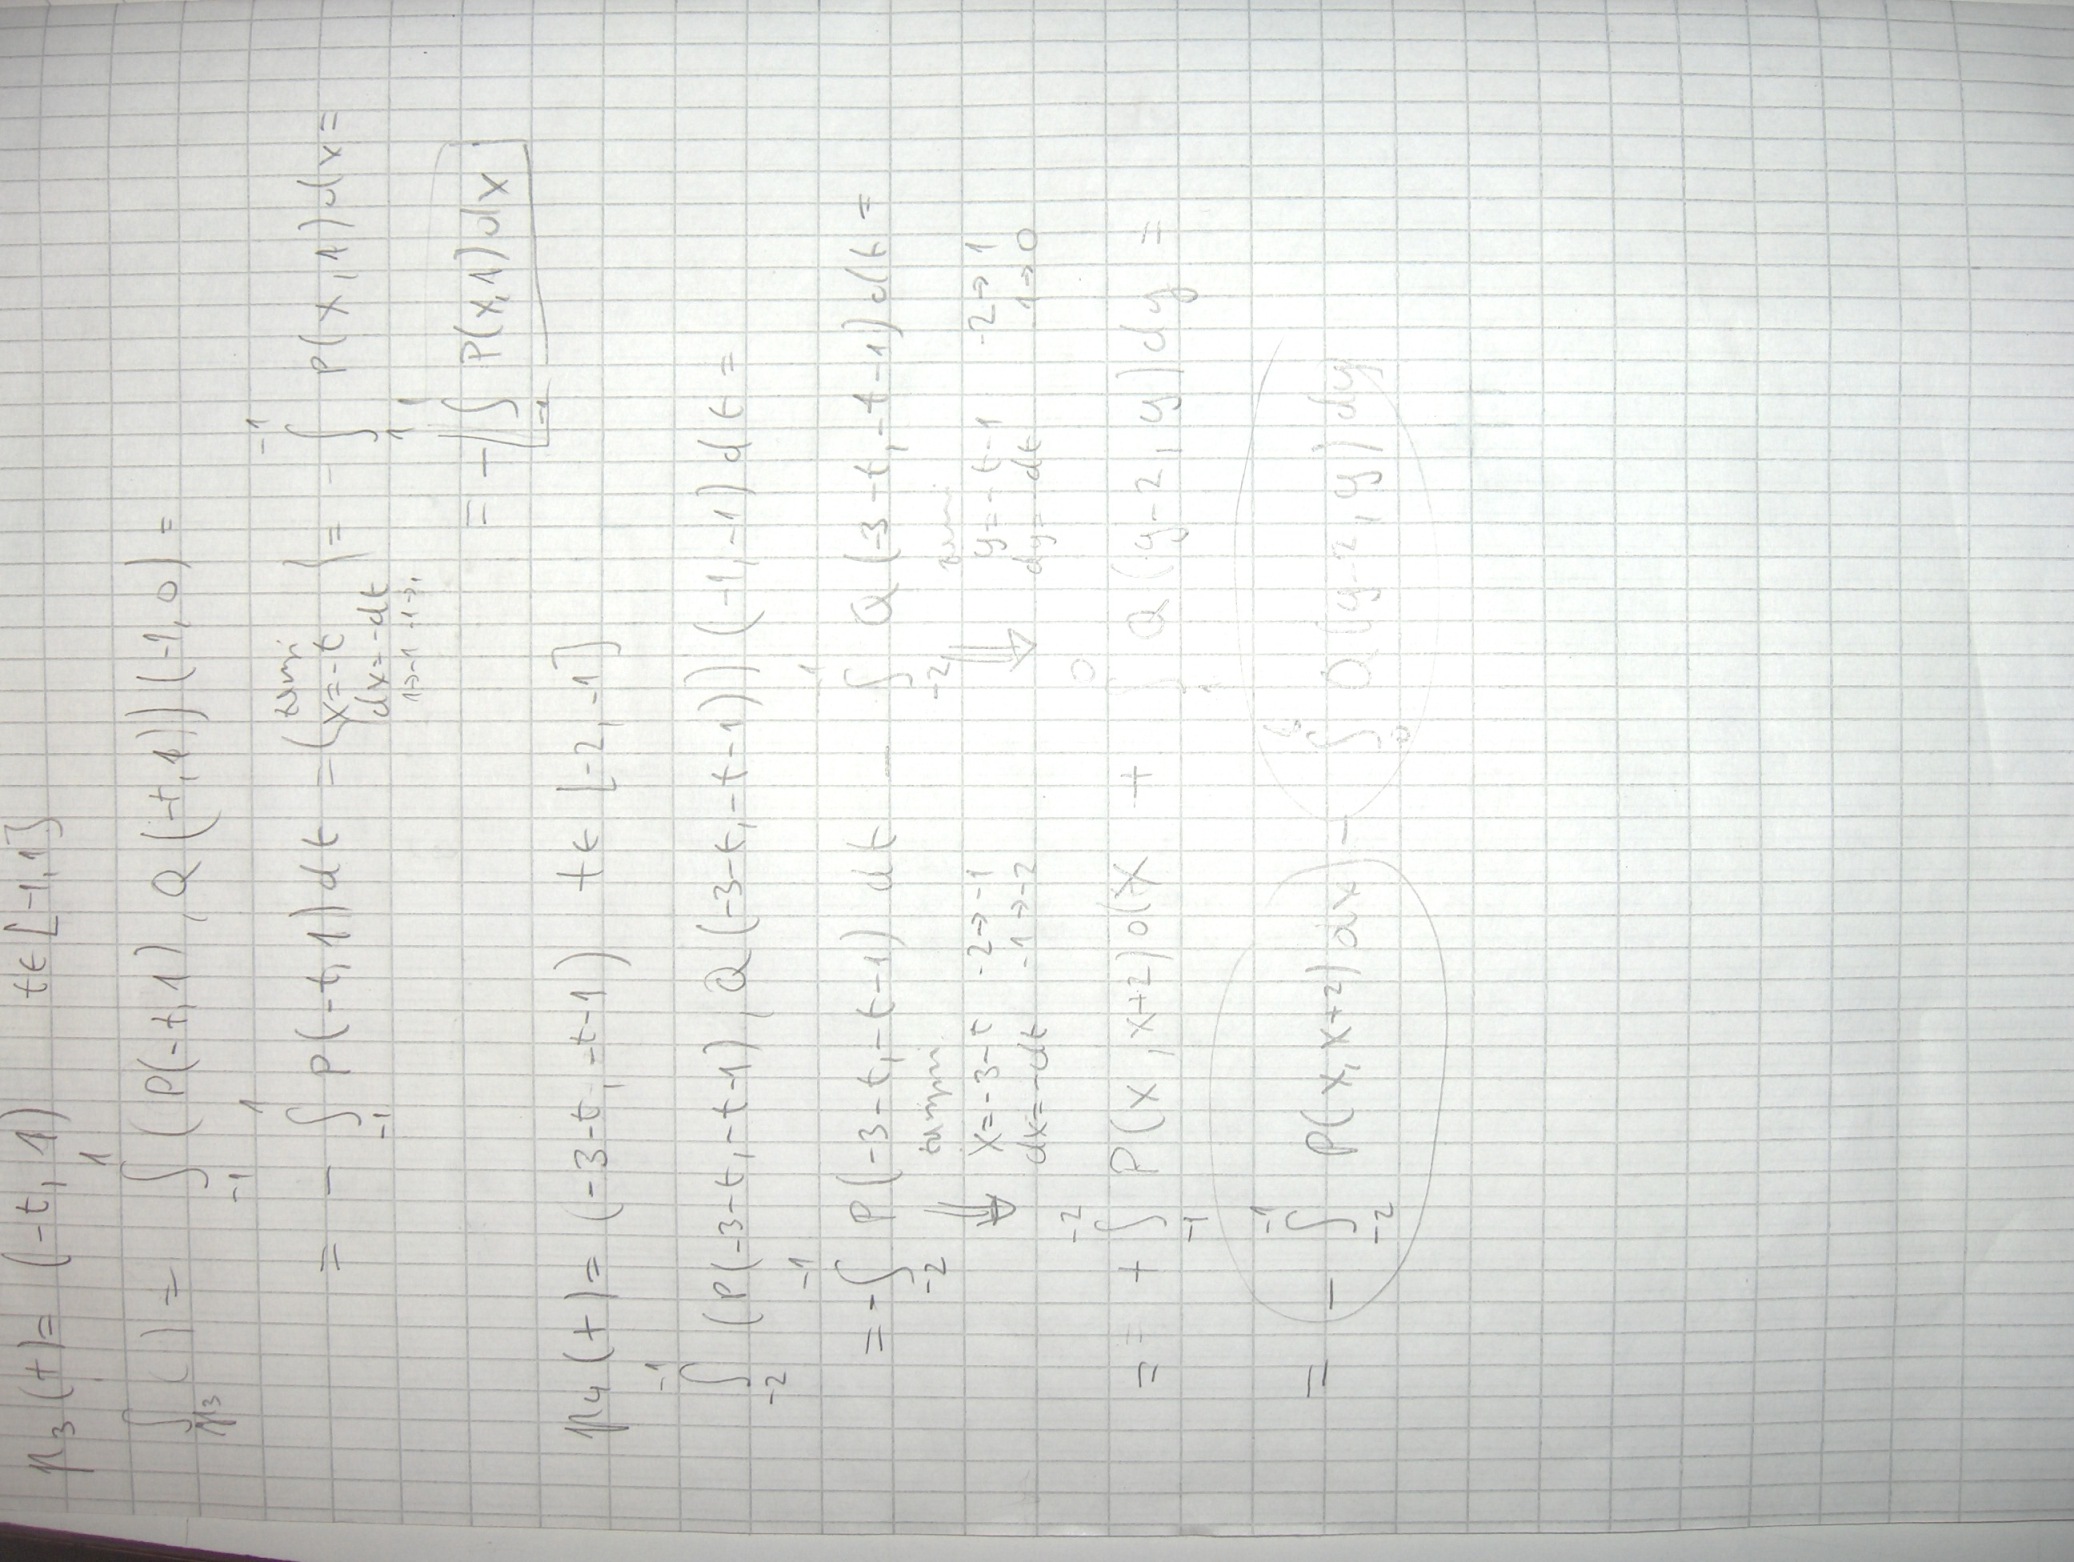 γ₃(t) = (-t, 1) t ∈ [-1, 1]
∫_{γ₃} ( ) = ∫_{-1}^{1} (P(-t, 1), Q(-t, 1)) (-1, 0) =
= - ∫_{-1}^{1} P(-t, 1) dt = { x = -t dx = -dt 1→-1 -1→1 } = - ∫_{1}^{-1} P(x, 1) dx =
= + ∫_{-1}^{1} P(x, 1) dx
γ₄(t) = (-3-t, -t-1) t ∈ [-2, -1]
∫_{-2}^{-1} (P(-3-t, -t-1), Q(-3-t, -t-1)) (-1, -1) dt =
= - ∫_{-2}^{-1} P(-3-t, -t-1) dt - ∫_{-2}^{1} Q(-3-t, -t-1) dt =
⇓ x = -3-t -2→-1 ⇓ y = -t-1 -2→1
dx = -dt -1→-2 dy = -dt 1→0
== + ∫_{-1}^{-2} P(x, x+2) dx + ∫_{1}^{0} Q(y-2, y) dy =
= - ∫_{-2}^{-1} P(x, x+2) dx - ∫_{0} Q(y-2, y) dy